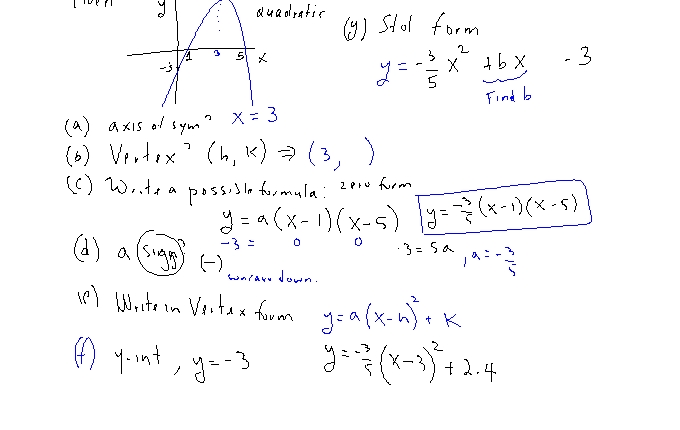 Given
y
quadratic
1 3 5 x
-3
(a) axis of sym? x = 3
(b) Vertex? (h, k) ⇒ (3, )
(c) Write a possible formula: zero form
y = a(x-1)(x-5)
y = -3/5 (x-1)(x-5)
-3 = 0 0
-3 = 5a, a = -3/5
(d) a sign? (-)
concave down.
(e) Write in Vertex form y = a(x-h)² + k
(f) y-int, y = -3 y = -3/5 (x-3)² + 2.4
(g) Std form
y = -3/5 x² + b x - 3
Find b